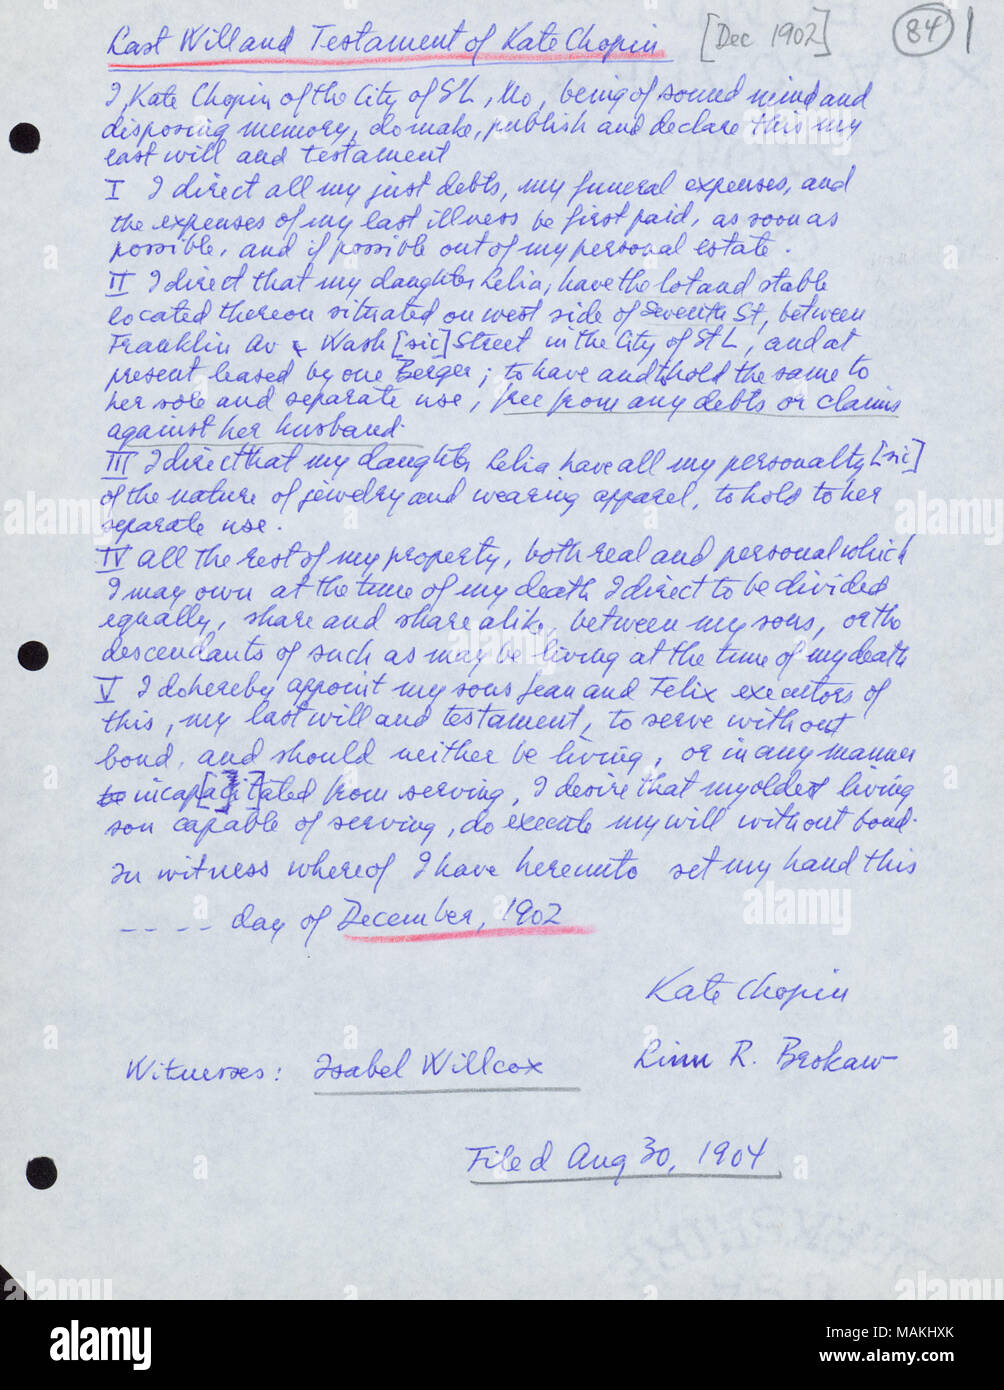 Last Will and Testament of Kate Chopin [Dec 1902] 84
I, Kate Chopin of the City of St L, Mo, being of sound mind and
disposing memory, do make, publish and declare this my
last will and testament
I I direct all my just debts, my funeral expenses, and
the expenses of my last illness be first paid, as soon as
possible, and if possible out of my personal estate.
II I direct that my daughter Lelia, have the lot and stable
located thereon situated on west side of Seventh St, between
Franklin Av & Wash [sic] Street in the City of St L, and at
present leased by one Berger; to have and to hold the same to
her sole and separate use, free from any debts or claims
against her husband.
III I direct that my daughter Lelia have all my personalty [sic]
of the nature of jewelry and wearing apparel, to hold to her
separate use.
IV All the rest of my property, both real and personal which
I may own at the time of my death I direct to be divided
equally, share and share alike, between my sons, or the
descendants of such as may be living at the time of my death
V I do hereby appoint my sons Jean and Felix executors of
this, my last will and testament, to serve without
bond, and should neither be living, or in any manner
be incapa[ci]tated from serving, I desire that my oldest living
son capable of serving, do execute my will without bond.
In witness whereof I have hereunto set my hand this
---- day of December, 1902
Kate Chopin
Witnesses: Isabel Willcox Linn R. Brokaw
Filed Aug 30, 1904
alamy
Image ID: MAKHXK
www.alamy.com